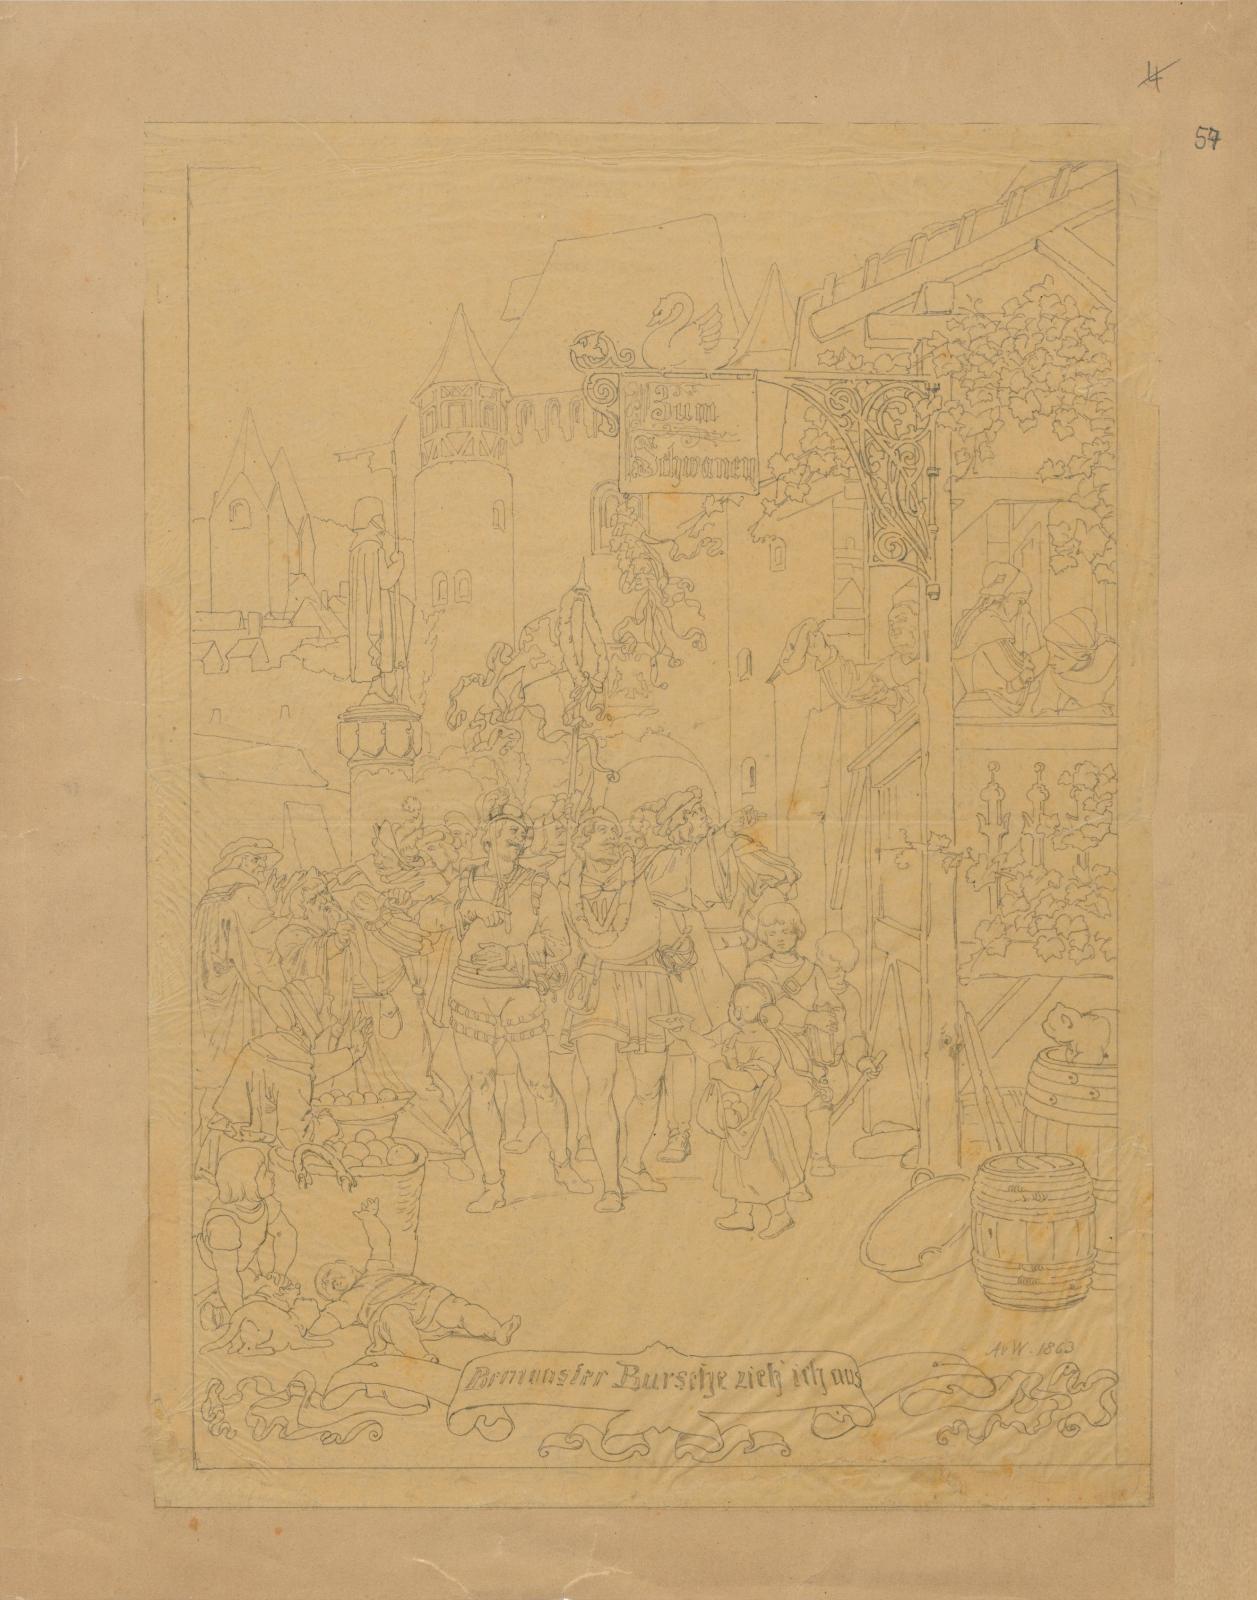 54
Zum
Schwanen
A v W. 1863
Bemooster Bursche zieh' ich aus